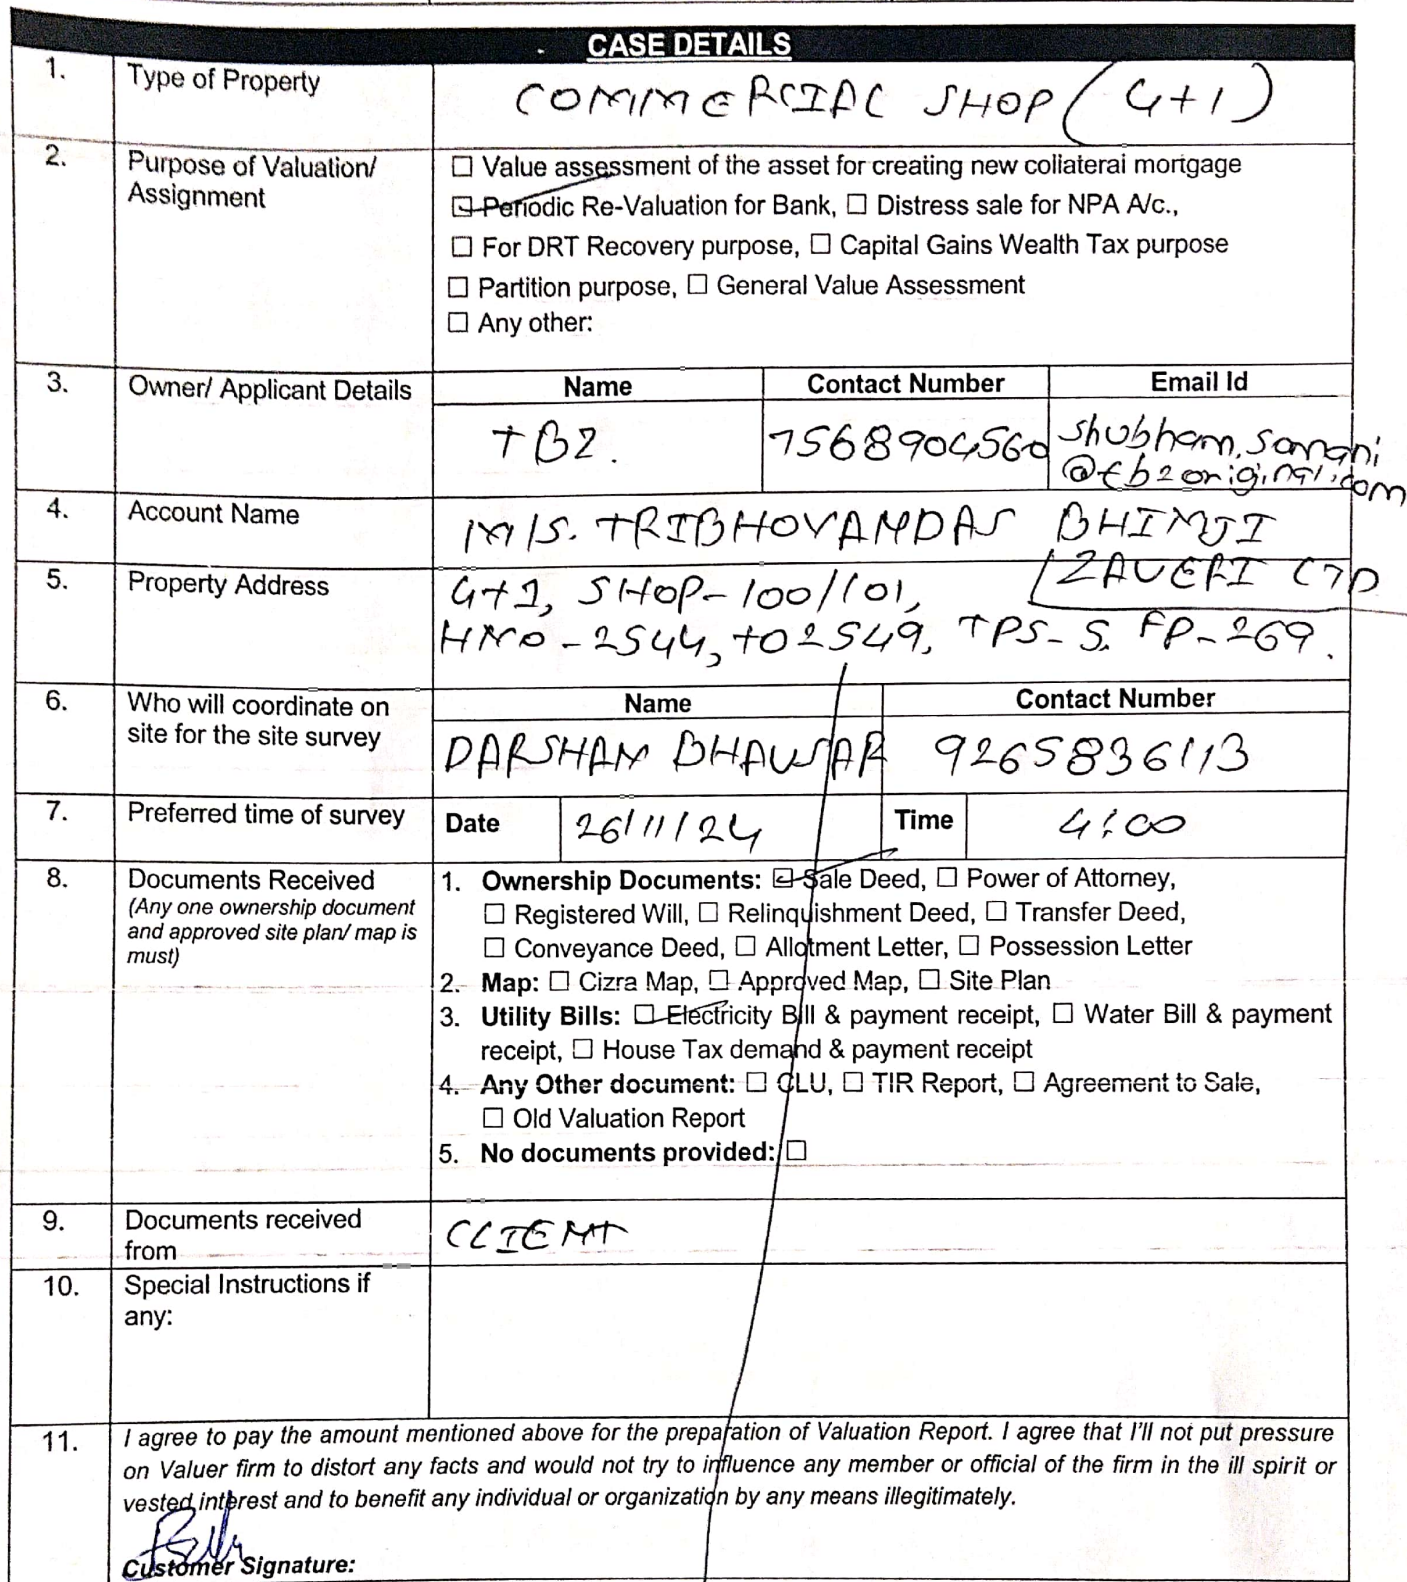 CASE DETAILS
1. Type of Property COMMERCIAL SHOP (G+1)
2. Purpose of Valuation/ Assignment
☐ Value assessment of the asset for creating new collateral mortgage
☑ Periodic Re-Valuation for Bank, ☐ Distress sale for NPA A/c.,
☐ For DRT Recovery purpose, ☐ Capital Gains Wealth Tax purpose
☐ Partition purpose, ☐ General Value Assessment
☐ Any other:
3. Owner/ Applicant Details Name Contact Number Email Id
TBZ. 7568904560 shubham.samani
@tbzoriginal.com
4. Account Name M/S. TRIBHOVANDAS BHIMJI
ZAVERI LTD
5. Property Address G+1, SHOP-100/101,
HNO-2544, TO 2549, TPS-5. FP-269.
6. Who will coordinate on Name Contact Number
site for the site survey DARSHAN BHAVSAR 9265836113
7. Preferred time of survey Date 26/11/24 Time 4:00
8. Documents Received
(Any one ownership document
and approved site plan/ map is
must)
1. Ownership Documents: ☑ Sale Deed, ☐ Power of Attorney,
☐ Registered Will, ☐ Relinquishment Deed, ☐ Transfer Deed,
☐ Conveyance Deed, ☐ Allotment Letter, ☐ Possession Letter
2. Map: ☐ Cizra Map, ☐ Approved Map, ☐ Site Plan
3. Utility Bills: ☑ Electricity Bill & payment receipt, ☐ Water Bill & payment
receipt, ☐ House Tax demand & payment receipt
4. Any Other document: ☐ CLU, ☐ TIR Report, ☐ Agreement to Sale,
☐ Old Valuation Report
5. No documents provided: ☐
9. Documents received CLIENT
from
10. Special Instructions if
any:
11. I agree to pay the amount mentioned above for the preparation of Valuation Report. I agree that I'll not put pressure
on Valuer firm to distort any facts and would not try to influence any member or official of the firm in the ill spirit or
vested interest and to benefit any individual or organization by any means illegitimately.
Customer Signature: